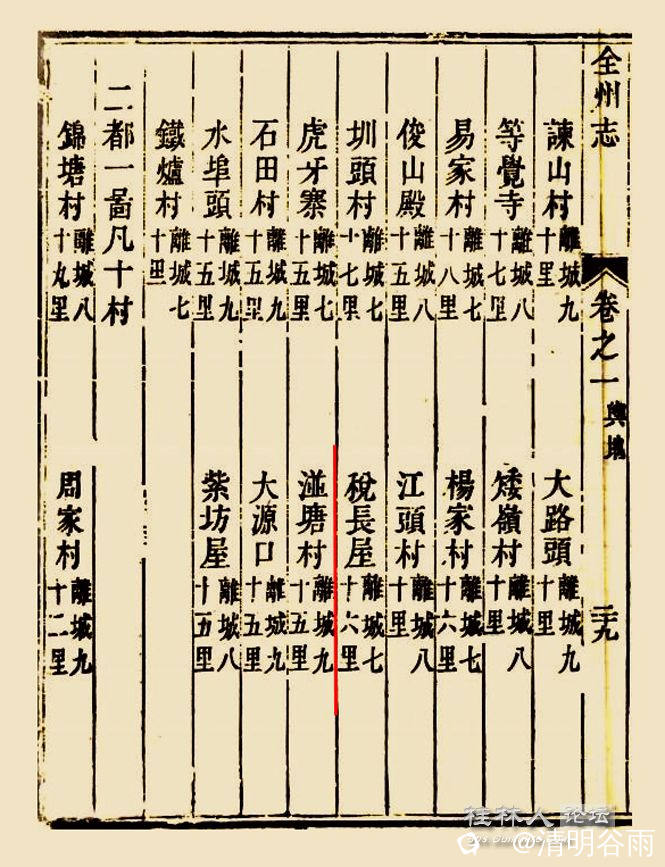 全州志 卷之一 輿地 二十九
諫山村 離城九十里 大路頭 離城九十里
等覺寺 離城八十七里 矮嶺村 離城八十里
易家村 離城七十八里 楊家村 離城七十六里
俊山殿 離城八十五里 江頭村 離城八十里
圳頭村 離城七十七里 稅長屋 離城七十六里
虎牙寨 離城七十五里 湴塘村 離城九十五里
石田村 離城九十五里 大源口 離城九十五里
水埠頭 離城九十五里 紫坊屋 離城八十五里
鐵爐村 離城七十里
二都一啚凡十村
錦塘村 離城八十九里 周家村 離城九十二里
桂林人论坛
@清明谷雨